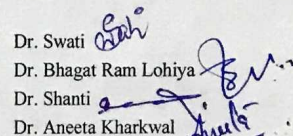 Dr. Swati
Dr. Bhagat Ram Lohiya
Dr. Shanti
Dr. Aneeta Kharkwal